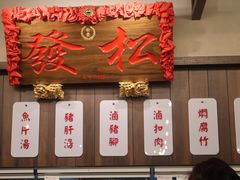 松發
燜腐竹
滷扣肉
滷豬腳
豬肝湯
魚片湯